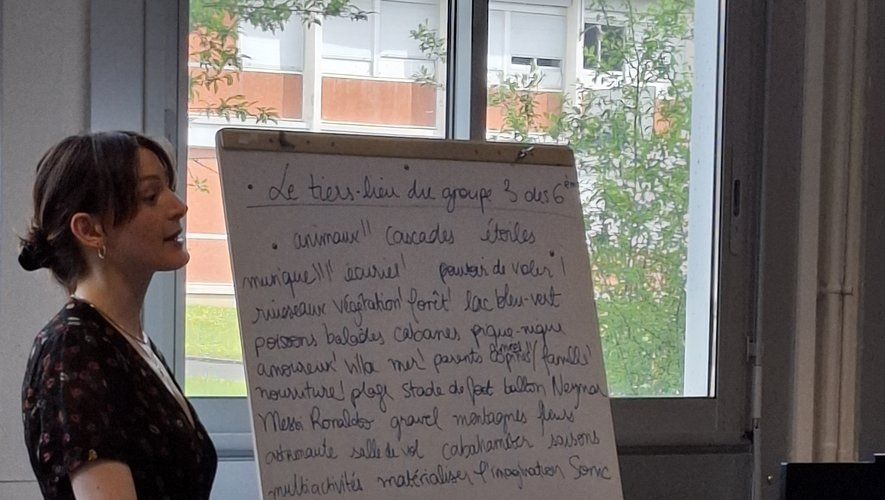 • Le tiers-lieu du groupe 3 des 6ème
• animaux'' cascades étoiles
musique'''' écuries' pouvoir de voler !
ruisseaux végétation' forêt' lac bleu-vert
poissons balades cabanes pique-nique
amoureux' villa mer' parents copines'' / famille'
nourriture' plage stade de foot ballon Neymar
Messi Ronaldo gravel montagnes fleurs
astronaute salle de vol saisons
multiactivités matérialiser l'imagination Sonic